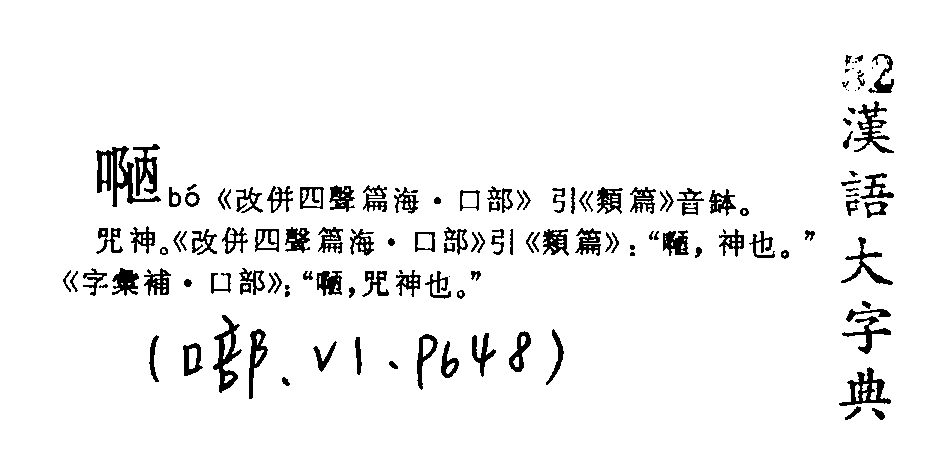 bó《改併四聲篇海·口部》引《類篇》音鉢。
咒神。《改併四聲篇海·口部》引《類篇》：“，神也。”
《字彙補·口部》：“，咒神也。”
(口部、V1、P648)
漢語大字典